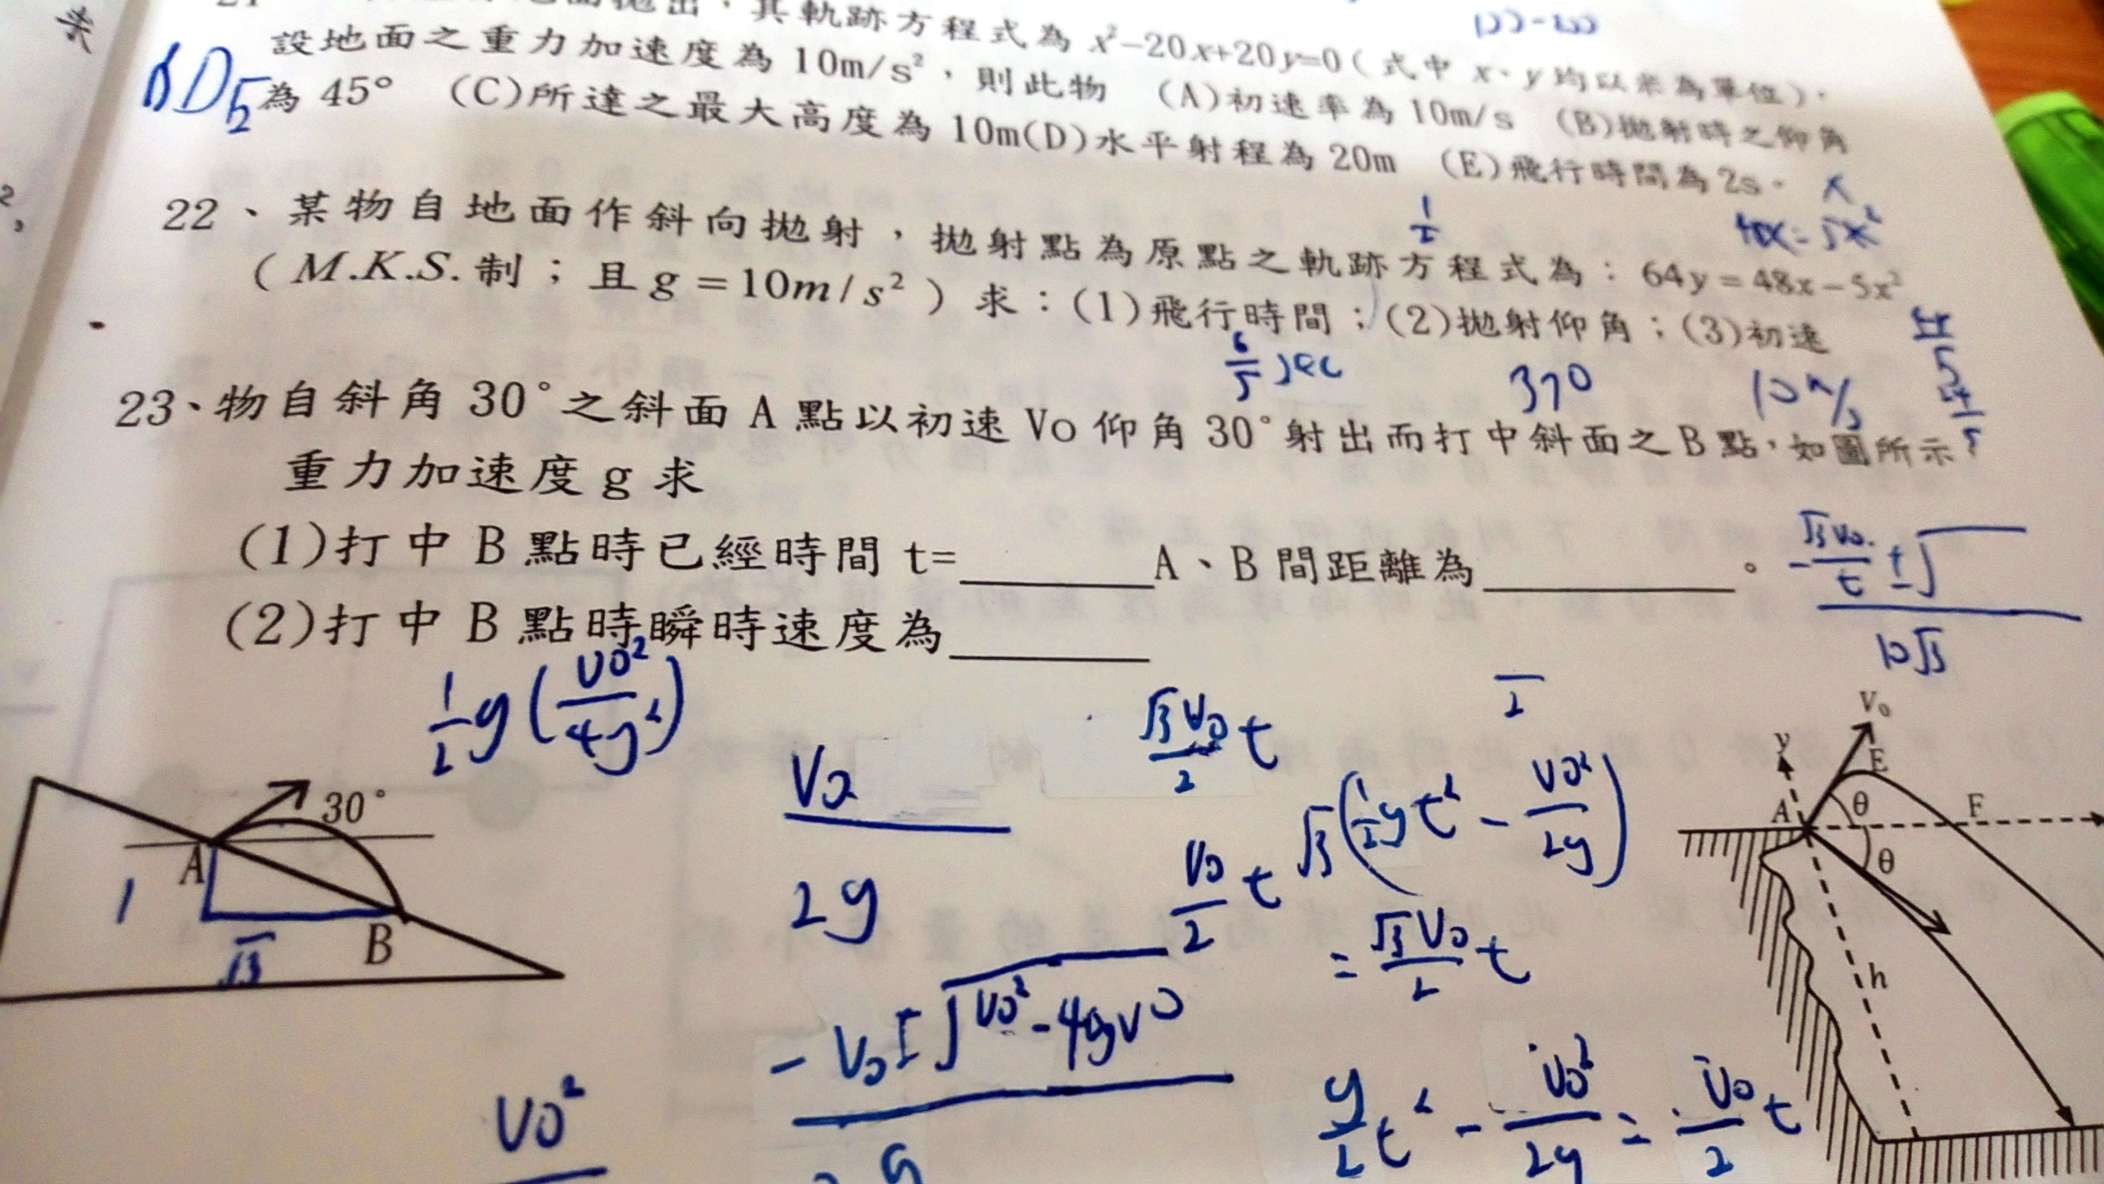 其軌跡方程式為 x²-20x+20y=0(式中 x、y 均以米為單位)。
設地面之重力加速度為 10m/s²，則此物 (A)初速率為 10m/s (B)拋射時之仰角
為 45° (C)所達之最大高度為 10m(D)水平射程為 20m (E)飛行時間為 2s。
22、某物自地面作斜向拋射，拋射點為原點之軌跡方程式為：64y=48x-5x²
(M.K.S.制；且 g=10m/s²) 求：(1)飛行時間；(2)拋射仰角；(3)初速
6/5 sec 37° 10m/s
23、物自斜角 30°之斜面 A 點以初速 Vo 仰角 30°射出而打中斜面之 B 點，如圖所示，
重力加速度 g 求
(1)打中 B 點時已經時間 t=______A、B 間距離為______。
(2)打中 B 點時瞬時速度為______
1/2 g(V0²/4g²)
V0/2g
√3V0/2 t
V0/2 t
√3(1/2 gt² - V0²/2g)
= √3V0/2 t
g/2 t² - V0²/2g = V0/2 t
V0²
30°
A
1
√3
B
V₀
y
E
A
θ
F
θ
h